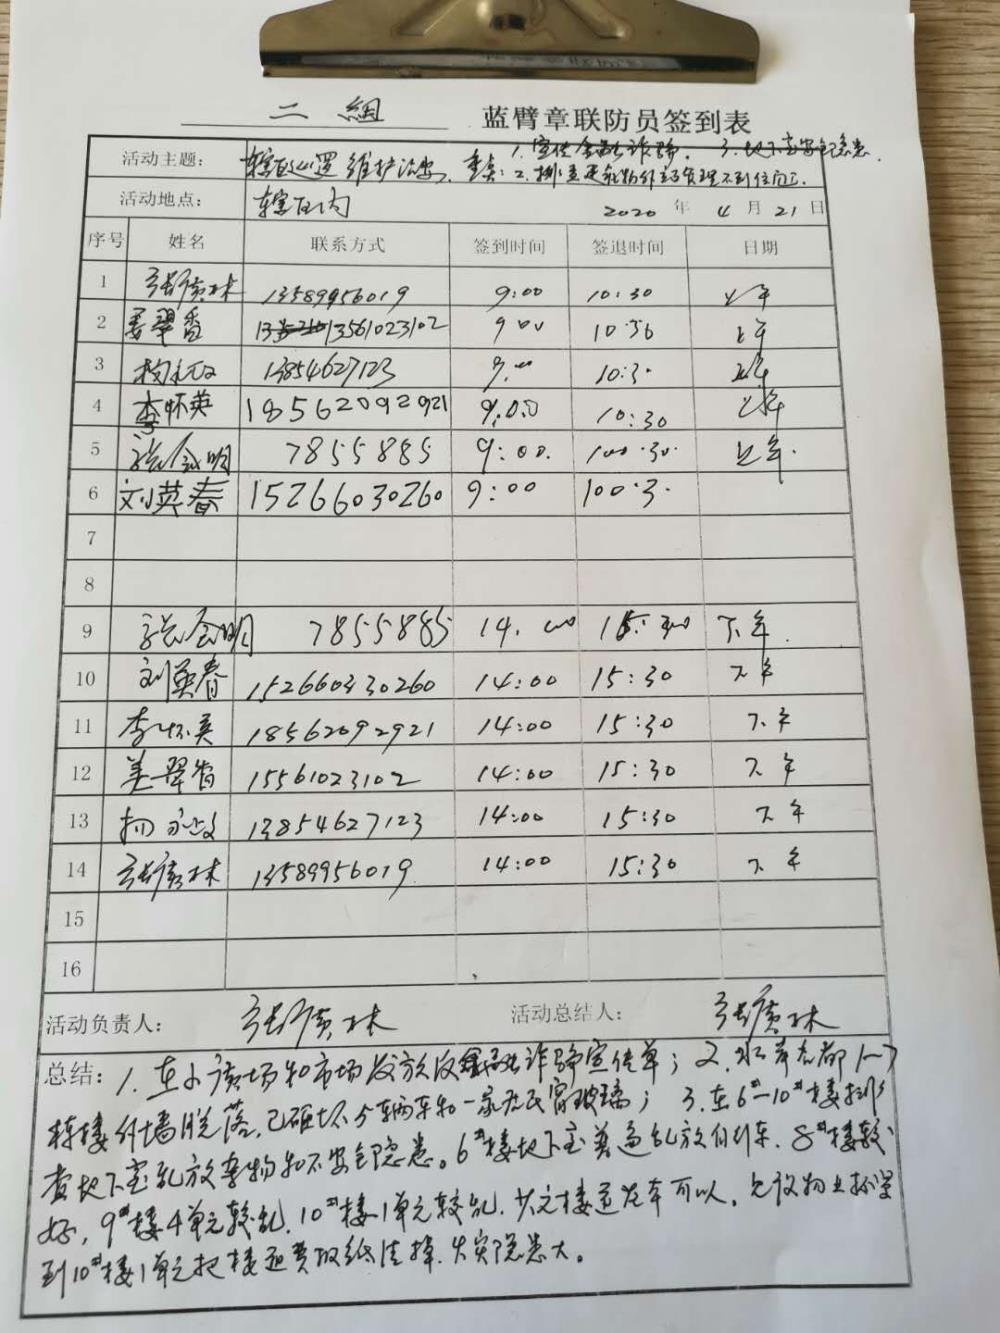 二網 蓝臂章联防员签到表
活动主题: 辖区巡逻 维护治安。重点: 1. 宣传金融诈骗. 3. 地下室安全隐患.
2. 排查 管理不到位
活动地点: 辖区内 2020 年 4 月 21 日
序号 姓名 联系方式 签到时间 签退时间 日期
1 张广林 13589956019 9:00 10:30 上午
2 姜翠香 13561023102 9:00 10:30 上午
3 13854627123 9:00 10:30 上午
4 李怀英 18562092921 9:00 10:30 上午
5 张会明 7855885 9:00. 100:30. 上午.
6 刘英春 15266030260 9:00 100:3.
7
8
9 张会明 7855885 14.00 15:30 下午.
10 刘英春 152660330260 14:00 15:30 下午
11 李怀英 18562092921 14:00 15:30 下午
12 姜翠香 15561023102 14:00 15:30 下午
13 13854627123 14:00 15:30 下午
14 张广林 13589956019 14:00 15:30 下午
15
16
活动负责人: 张广林 活动总结人: 张广林
总结: 1. 在小广场和市场发放反金融诈骗宣传单; 2. 水岸元都1—7
栋楼外墙脱落,已砸坏5辆车和一家居民窗玻璃; 3. 在6#—10#楼排
查地下室乱放杂物和不安全隐患。6#楼地下室普遍乱放自行车. 8#楼较
好, 9#楼4单元较乱. 10#楼1单元较乱. 其它楼道汽车可以。建议物业
到10#楼1单元把楼道费报纸清掉. 火灾隐患大。